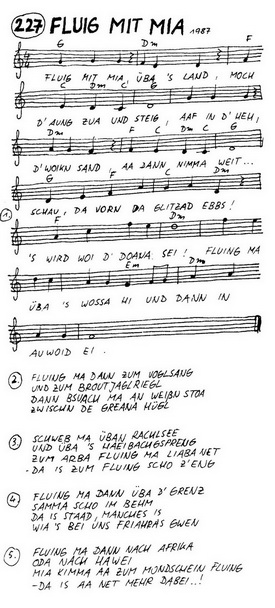 227 FLUIG MIT MIA 1987
G Dm F
FLUIG MIT MIA, ÜBA 'S LAND, MOCH
C Dm C G
D' AUNG ZUA UND STEIG, AAF IN D' HEH,
Dm F C Dm C
D'WOIKN SAND, AA DANN NIMMA WEIT...
G F C
SCHAU, DA VORN DA GLITZAD EBBS!
1. F Dm
'S WIRD WOI D' DOANA SEI! FLUING MA
Em Dm
ÜBA 'S WOSSA HI UND DANN IN
AUWOID EI.
2. FLUING MA DANN ZUM VOGLSANG
UND ZUM BROUTJAGLRIEGL
DANN BSUACH MA AN WEIBN STOA
ZWISCHN DE GREANA HÜGL
3. SCHWEB MA ÜBAN RACHLSEE
UND ÜBA 'S
ZUM ARBA FLUING MA LIABA NET
- DA IS ZUM FLUING SCHO Z'ENG
4. FLUING MA DANN ÜBA D' GRENZ
SAMMA SCHO IM BEHM
DA IS STAAD, MANCHES IS
WIA 'S BEI UNS FRIAHRAS GWEN
5. FLUING MA DANN NACH AFRIKA
ODA NACH HAWEI
MIA KIMMA AA ZUM MONDSCHEIN FLUING
- DA IS AA NET MEHR DABEI..!